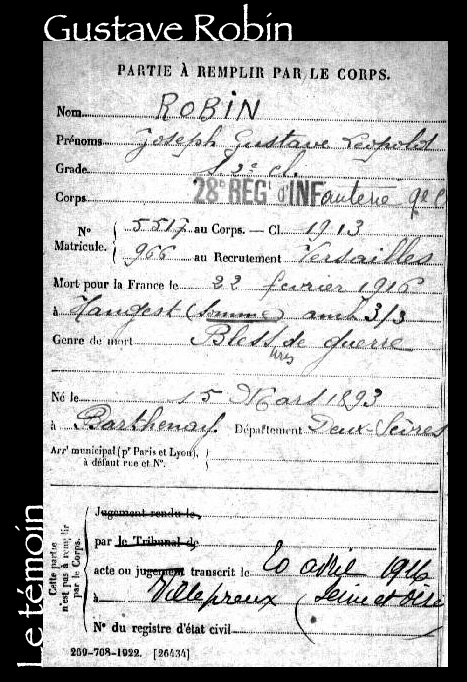 Gustave Robin
PARTIE À REMPLIR PAR LE CORPS.
Nom ROBIN
Prénoms Joseph Gustave Léopold
Grade 2e cl.
Corps 28e REGt d'INFanterie
No Matricule. { 5517 au Corps. — Cl. 1913
966 au Recrutement Versailles
Mort pour la France le 22 février 1916
à Hangest (Somme) amb 3/3
Genre de mort Blessures de guerre
Né le 15 Mars 1893
à Parthenay Département Deux-Sèvres
Arrt municipal (pr Paris et Lyon), à défaut rue et No.
Cette partie n'est pas à remplir par le Corps.
Jugement rendu le
par le Tribunal de
acte ou jugement transcrit le 20 avril 1916
à Villepreux (Seine et Oise
No du registre d'état civil
209-708-1922. [26434]
Le témoin